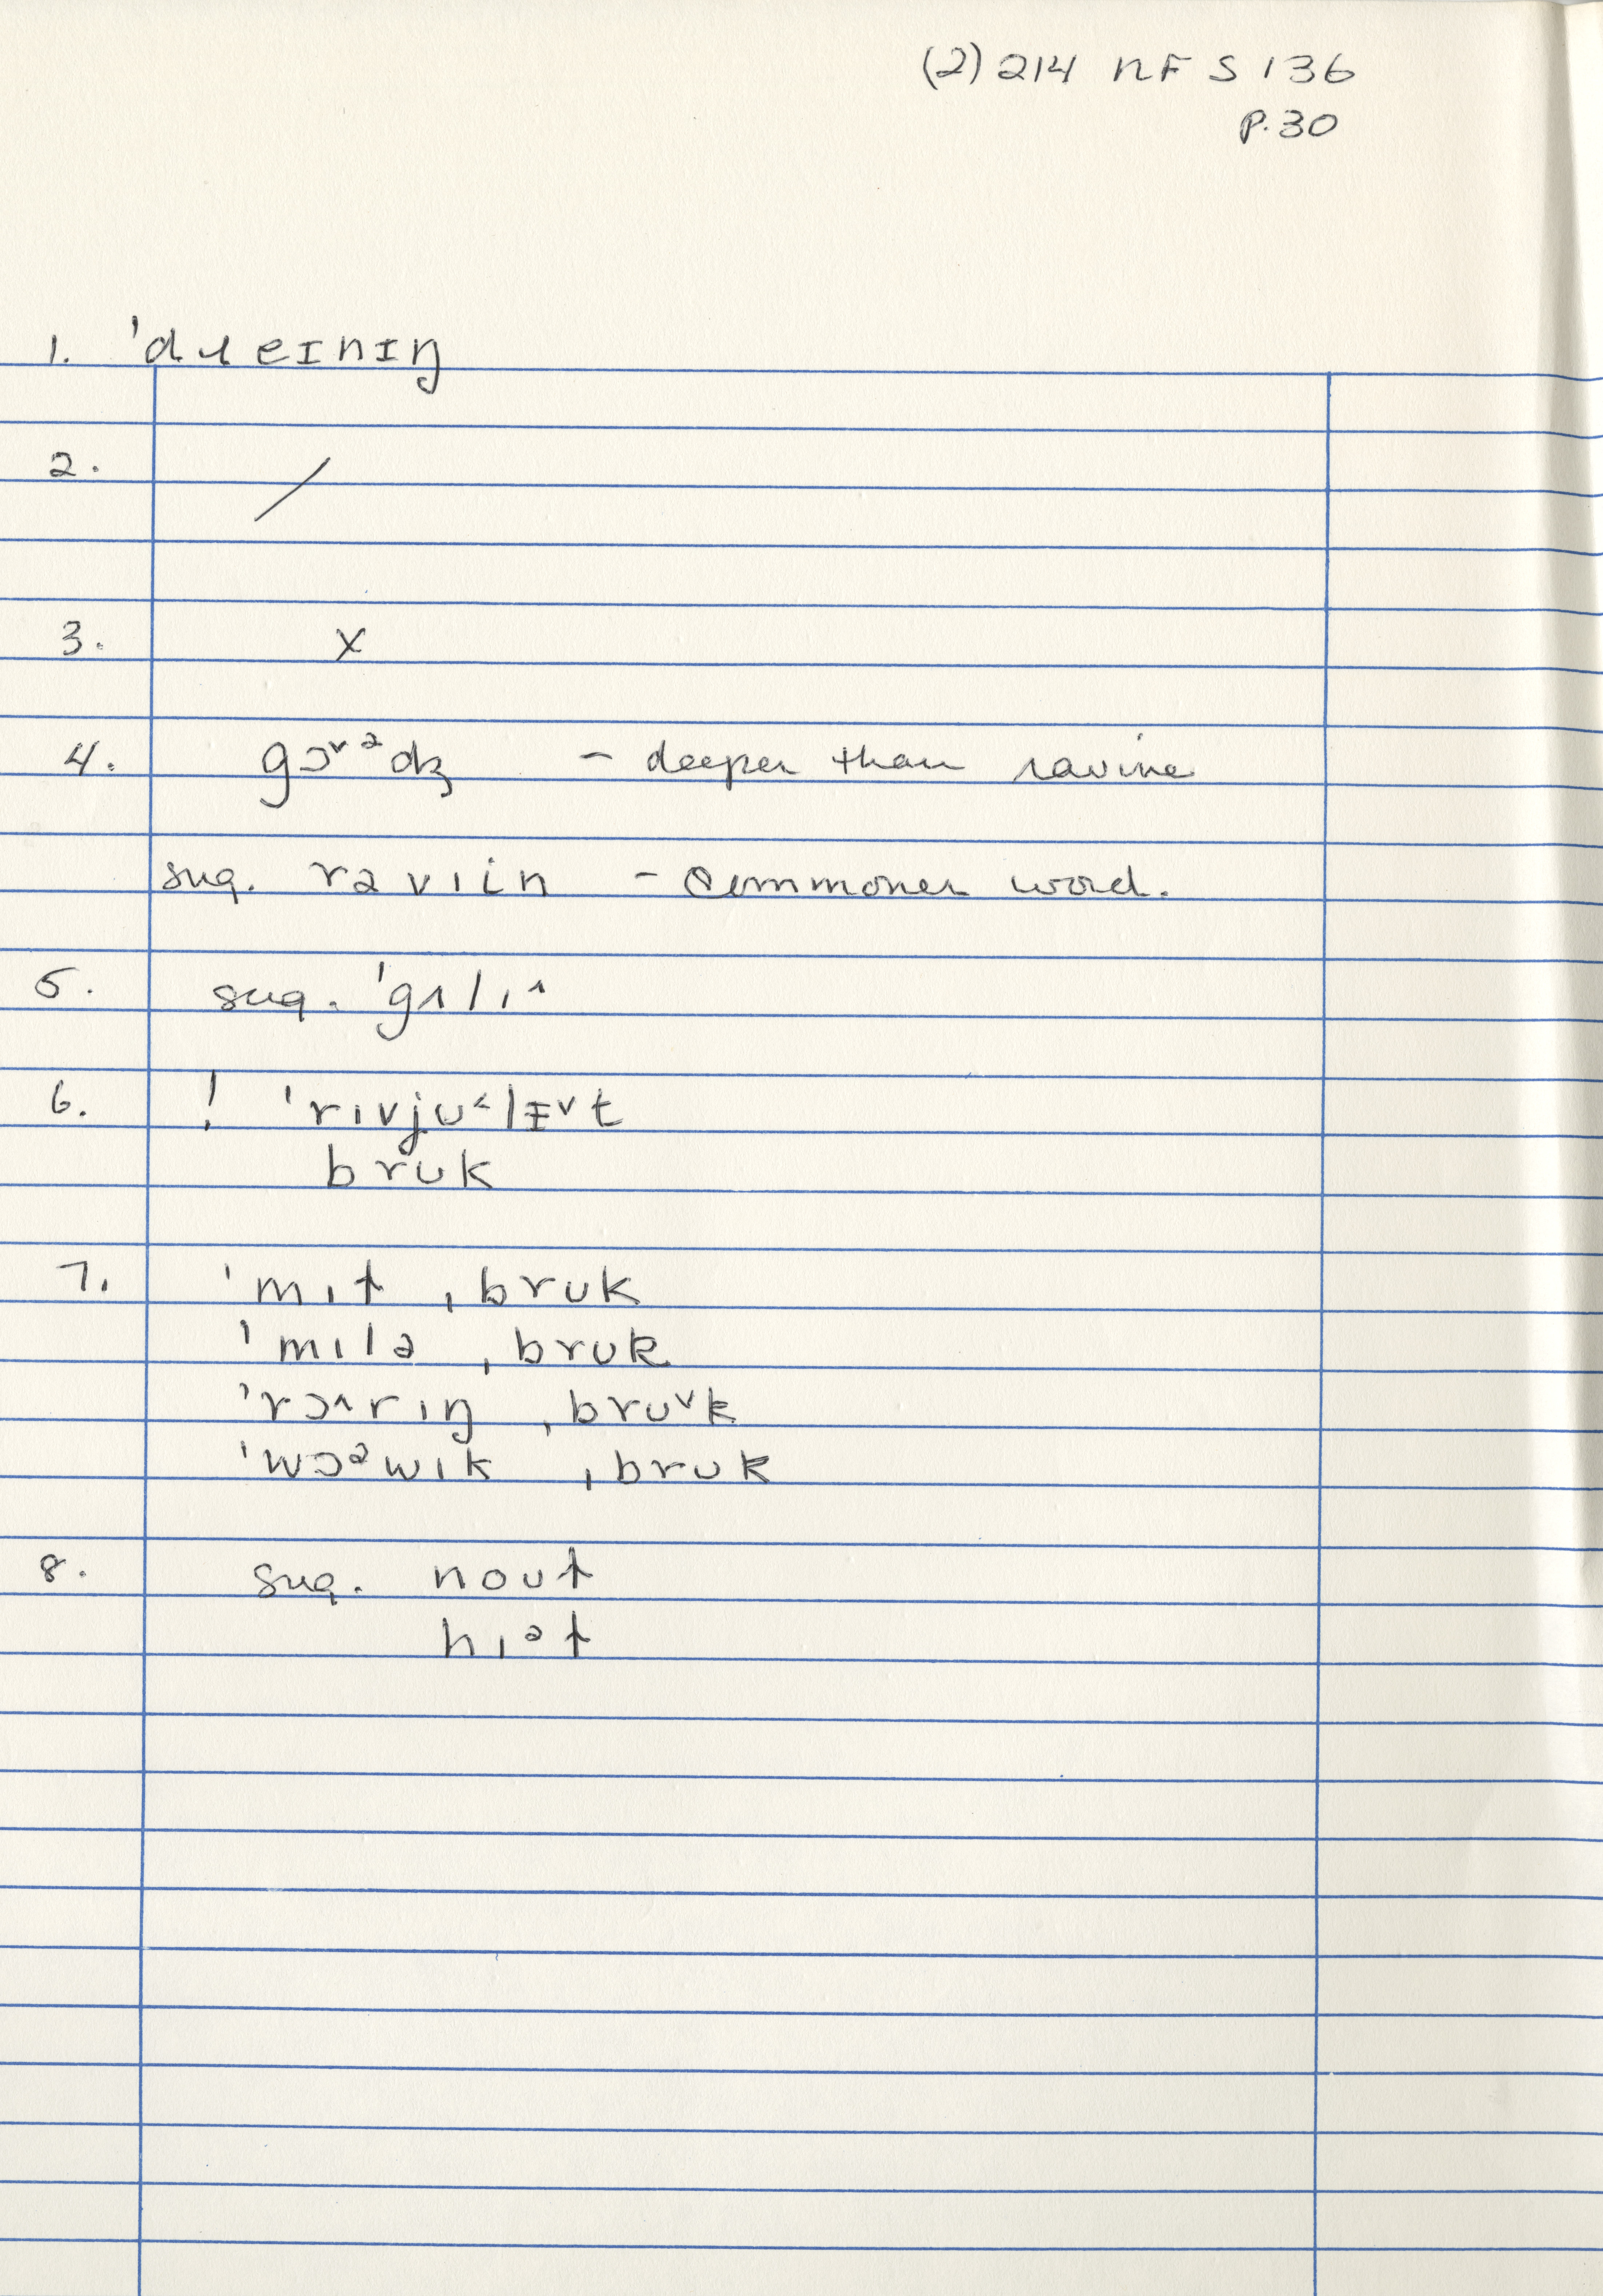 (2) 214 NF S 136
P. 30
1. 'dɹeɪnɪŋ
2. /
3. x
4. gɔ˅ᵊdʒ – deeper than ravine
sug. rəvıin – commoner word.
5. sug. 'gʌlı^
6. ! 'rıvjʊ˂lɪ˅t
brʊk
7. 'mıɫ ˌbrʊk
'mılə ˌbrʊk
'rɔ^rıŋ ˌbrʊ˅k
'wɔᵊwık ˌbrʊk
8. sug. noʊɫ
hıᵊɫ